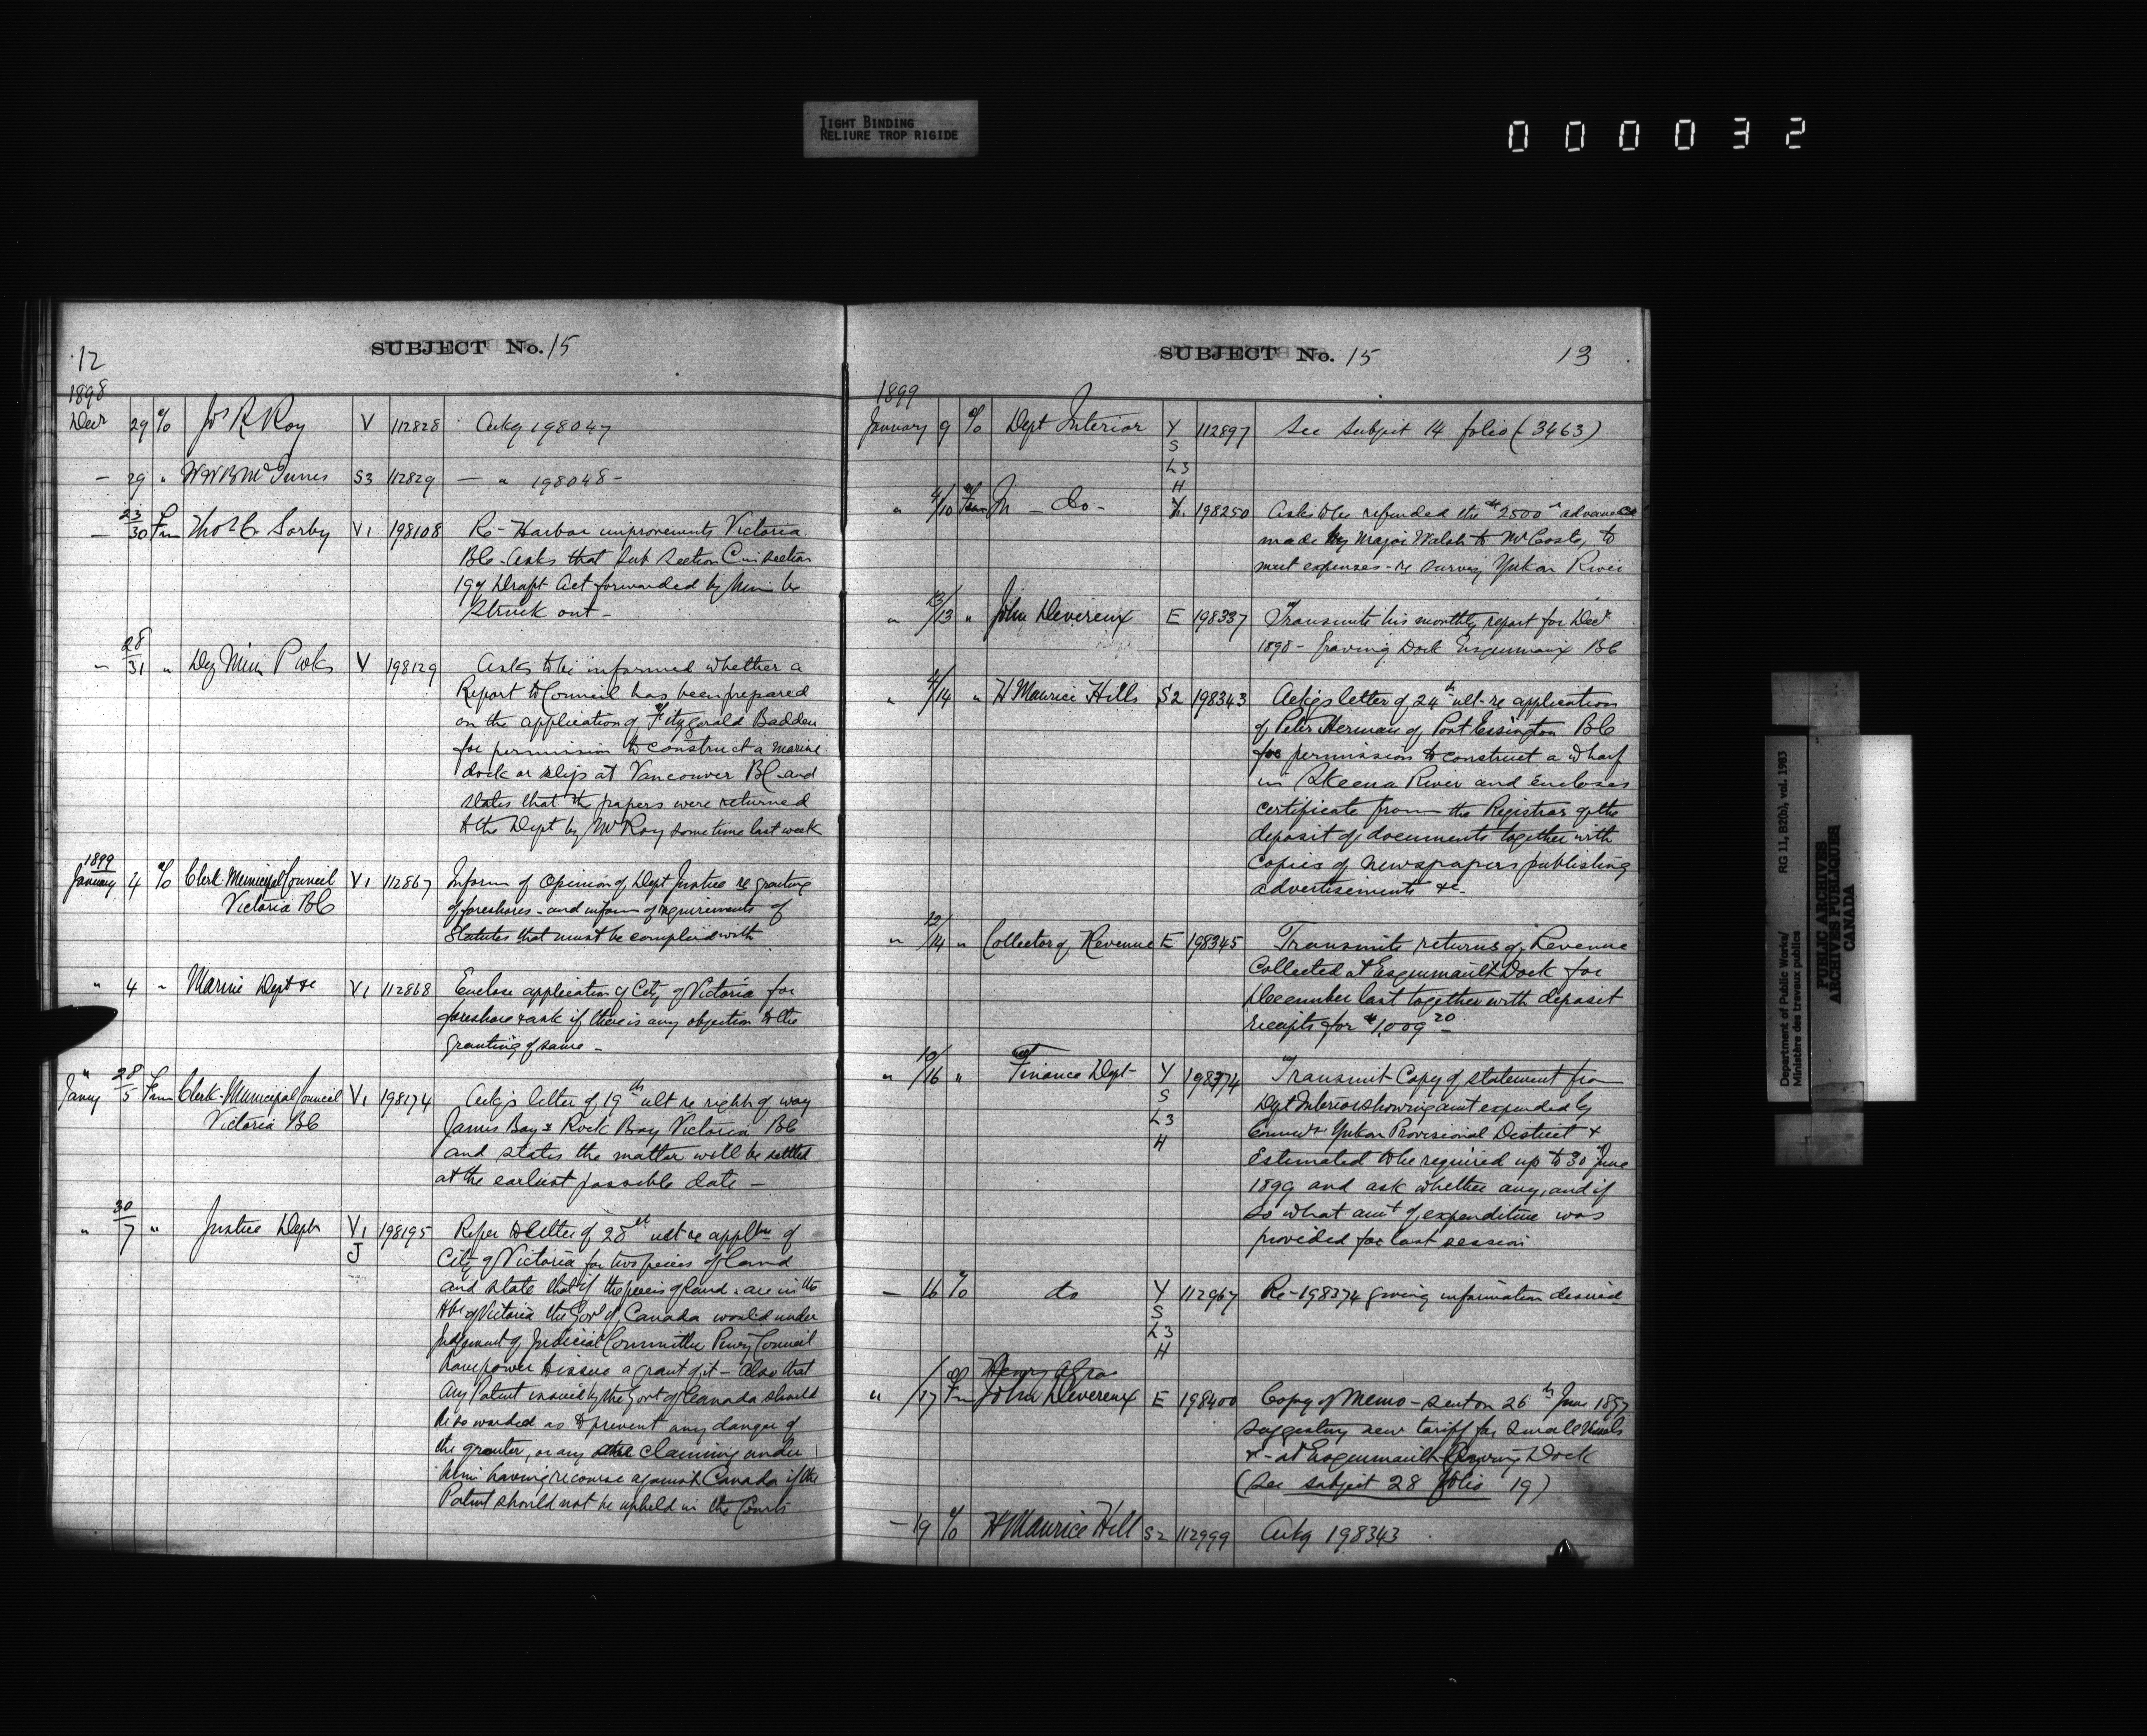 TIGHT BINDING
RELIURE TROP RIGIDE
000032
12
SUBJECT No. 15
1898
Decr 29 % Jos R Roy V 112828 Ackg 198047
— 29 " W W B McInnes S3 112829 — " 198048 —
— 23/30 Fm Thos C Sorby V1 198108 Re - Harbor improvements Victoria
BC - asks that Sub Section C in section
19 of Draft Act forwarded by him be
struck out —
— 28/31 " Dep Min P Wks V 198129 Asks to be informed whether a
Report to Council has been prepared
on the application of Fitzgerald Badden
for permission to construct a marine
dock or slip at Vancouver BC and
states that the papers were returned
to the Dept by Mr Roy sometime last week
1899
January 4 % Clerk Municipal Council V1 112867 Inform of Opinion of Dept Justice re granting
Victoria BC of foreshores - and inform of requirements of
Statutes that must be complied with
" 4 " Marine Dept &c V1 112868 Enclose application of City of Victoria for
foreshore & ask if there is any objection to the
granting of same —
" Jany 28/5 Fm Clerk - Municipal Council V1 198174 Ackgs letter of 19th ult re right of way
Victoria BC James Bay & Rock Bay Victoria BC
and states the matter will be settled
at the earliest possible date —
" 30/7 " Justice Dept V1 198195 Refer to letter of 28th ult re appltn of
J City of Victoria for two pieces of land
and state that if the pieces of land are in the
Hbr of Victoria the Govt of Canada would under
Judgement of Judicial Committee Privy Council
have power to issue a grant of it — Also that
any Patent issued by the Govt of Canada should
be so worded as to prevent any danger of
the grantee, or any other claiming under
him having recourse against Canada if the
Patent should not be upheld in the Courts
SUBJECT No. 15
13
1899
January 9 % Dept Interior Y 112897 See Subject 14 folio (3463)
S
L3
H
" 4/10 Fm — do — Y. 198250 Asks to be refunded the $2500 advance
made by Major Walsh to Mr Coste, to
meet expenses - re survey Yukon River
" 13/13 " John Devereux E 198337 Transmits his monthly report for Decr
1898 - Graving Dock Esquimaux BC
" 4/14 " H Maurice Hills S2 198343 Ackgs letter of 24th ult - re application
of Peter Herman of Port Essington BC
for permission to construct a wharf
in Skeena River and encloses
certificate from the Registrar of the
deposit of documents together with
Copies of newspapers publishing
advertisements &c -
" 12/14 " Collector of Revenue E 198345 Transmits returns of Revenue
Collected at Esquimault Dock for
December last together with deposit
receipts for $1,009 20 —
" 10/16 " Finance Dept Y 198374 Transmit Copy of statement from
S Dept Interior showing amt expended by
L3 Commr Yukon Provisional District &
H Estimated to be required up to 30 June
1899 and ask whether any, and if
so what amt of expenditure was
provided for last session
— 16 % do Y 112967 Re - 198374 giving information desired
S
L3
H
Henry
" /17 Fm John Devereux E 198400 Copy of Memo - sent on 26th June 1897
suggesting new tariff for Small Vessels
&c - at Esquimault Graving Dock
(See subject 28 folio 19)
— 19 % H Maurice Hill S2 112999 Ackg 198343
Department of Public Works/ RG 11, B2(b), vol. 1983
Ministère des travaux publics
PUBLIC ARCHIVES
ARCHIVES PUBLIQUES
CANADA